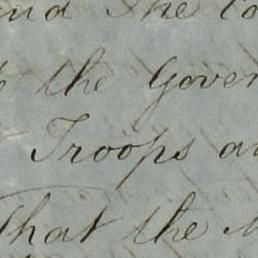 and The Co
the Gover
Troops a
That the